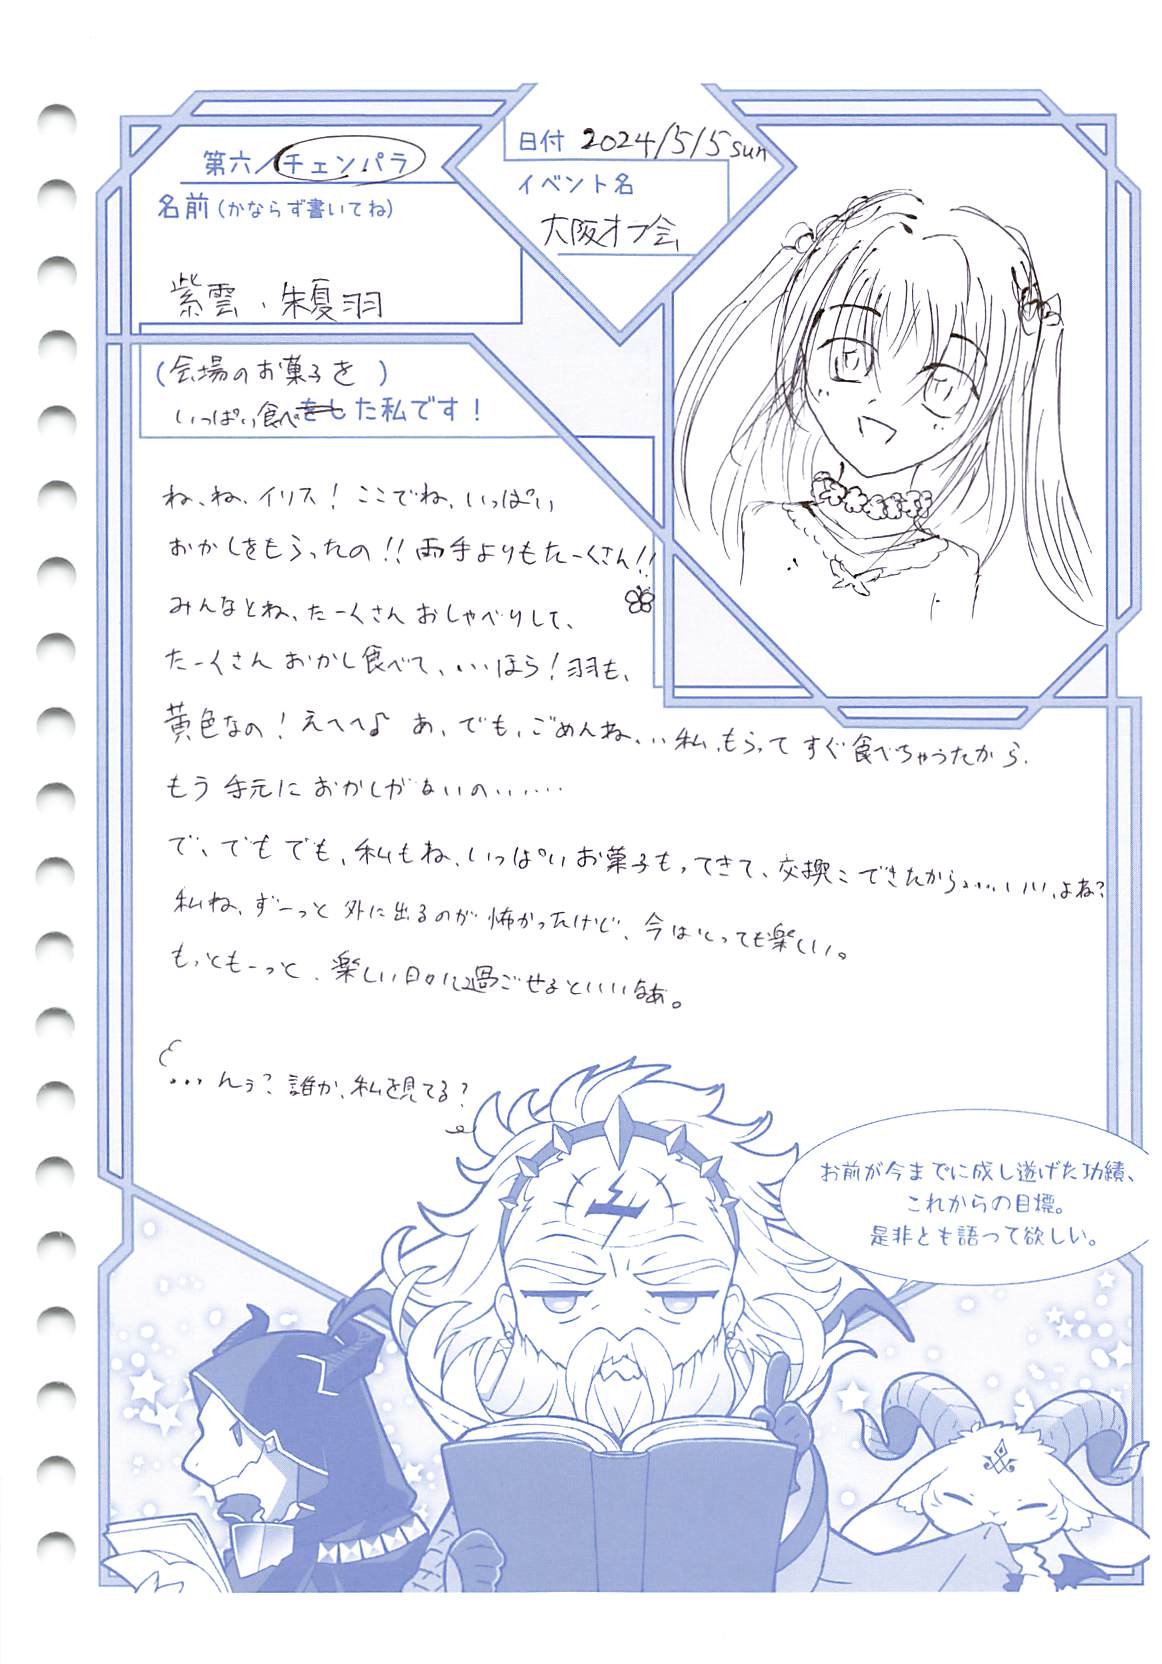 第六/チェンパラ
名前(かならず書いてね)
紫雲、朱夏羽
日付 2024/5/5 sun
イベント名
大阪オフ会
(会場のお菓子を)
いっぱい食べをした私です!
ね、ね、イリス!ここでね、いっぱい
おかしをもらったの!!両手よりもたーくさん!!
みんなとね、たーくさんおしゃべりして、
たーくさんおかし食べて、、、ほら!羽も、
黄色なの!えへへ♪ あ、でも、ごめんね、、、私、もらってすぐ食べちゃうたから、
もう手元におかしがないの、、、、、、
で、でもでも、私もね、いっぱいお菓子もってきて、交換こできたから、、、、いい、よね?
私ね、ずーっと外に出るのが怖かったけど、今はとっても楽しい。
もっともーっと、楽しい日々に過ごせるといいなあ。
...んぅ?誰か、私を見てる?
お前が今までに成し遂げた功績、
これからの目標。
是非とも語って欲しい。